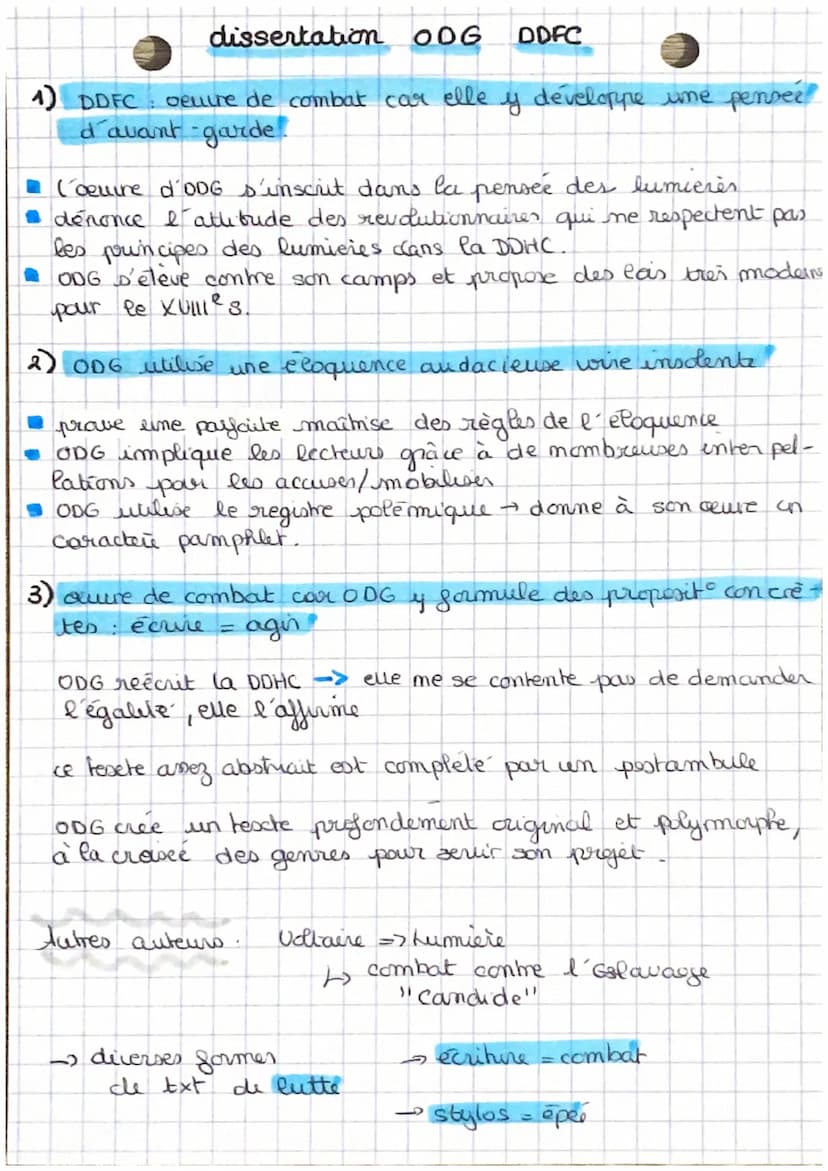 dissertation ODG DDFC
1) DDFC : oeuvre de combat car elle y développe une pensée
d'avant-garde.
L'oeuvre d'ODG s'inscrit dans la pensée des lumières
dénonce l'attitude des revolutionnaires qui ne respectent pas
les principes des lumieres dans la DDHC.
ODG s'élève contre son camps et propose des lois très modern
pour le XVIIIe s.
2) ODG utilise une éloquence audacieuse voire insolente
prouve une parfaite maîtrise des règles de l'éloquence
ODG implique les lecteurs grâce à de nombreuses interpel-
lations pour les accuser/mobiliser
ODG utilise le registre polémique → donne à son œuvre un
caractère pamphlet.
3) œuvre de combat car ODG y formule des proposit° concrè-
tes : écrire = agir
ODG reécrit la DDHC → elle ne se contente pas de demander
l'égalité, elle l'affirme
ce texte assez abstrait est complété par un postambule
ODG crée un texte profondement original et polymorphe,
à la croisée des genres pour servir son projet.
Autres auteurs. Voltaire => Lumière
↳ combat contre l'esclavage
"Candide"
→ diverses formes → écriture = combat
de txt de lutte
→ stylos = épée